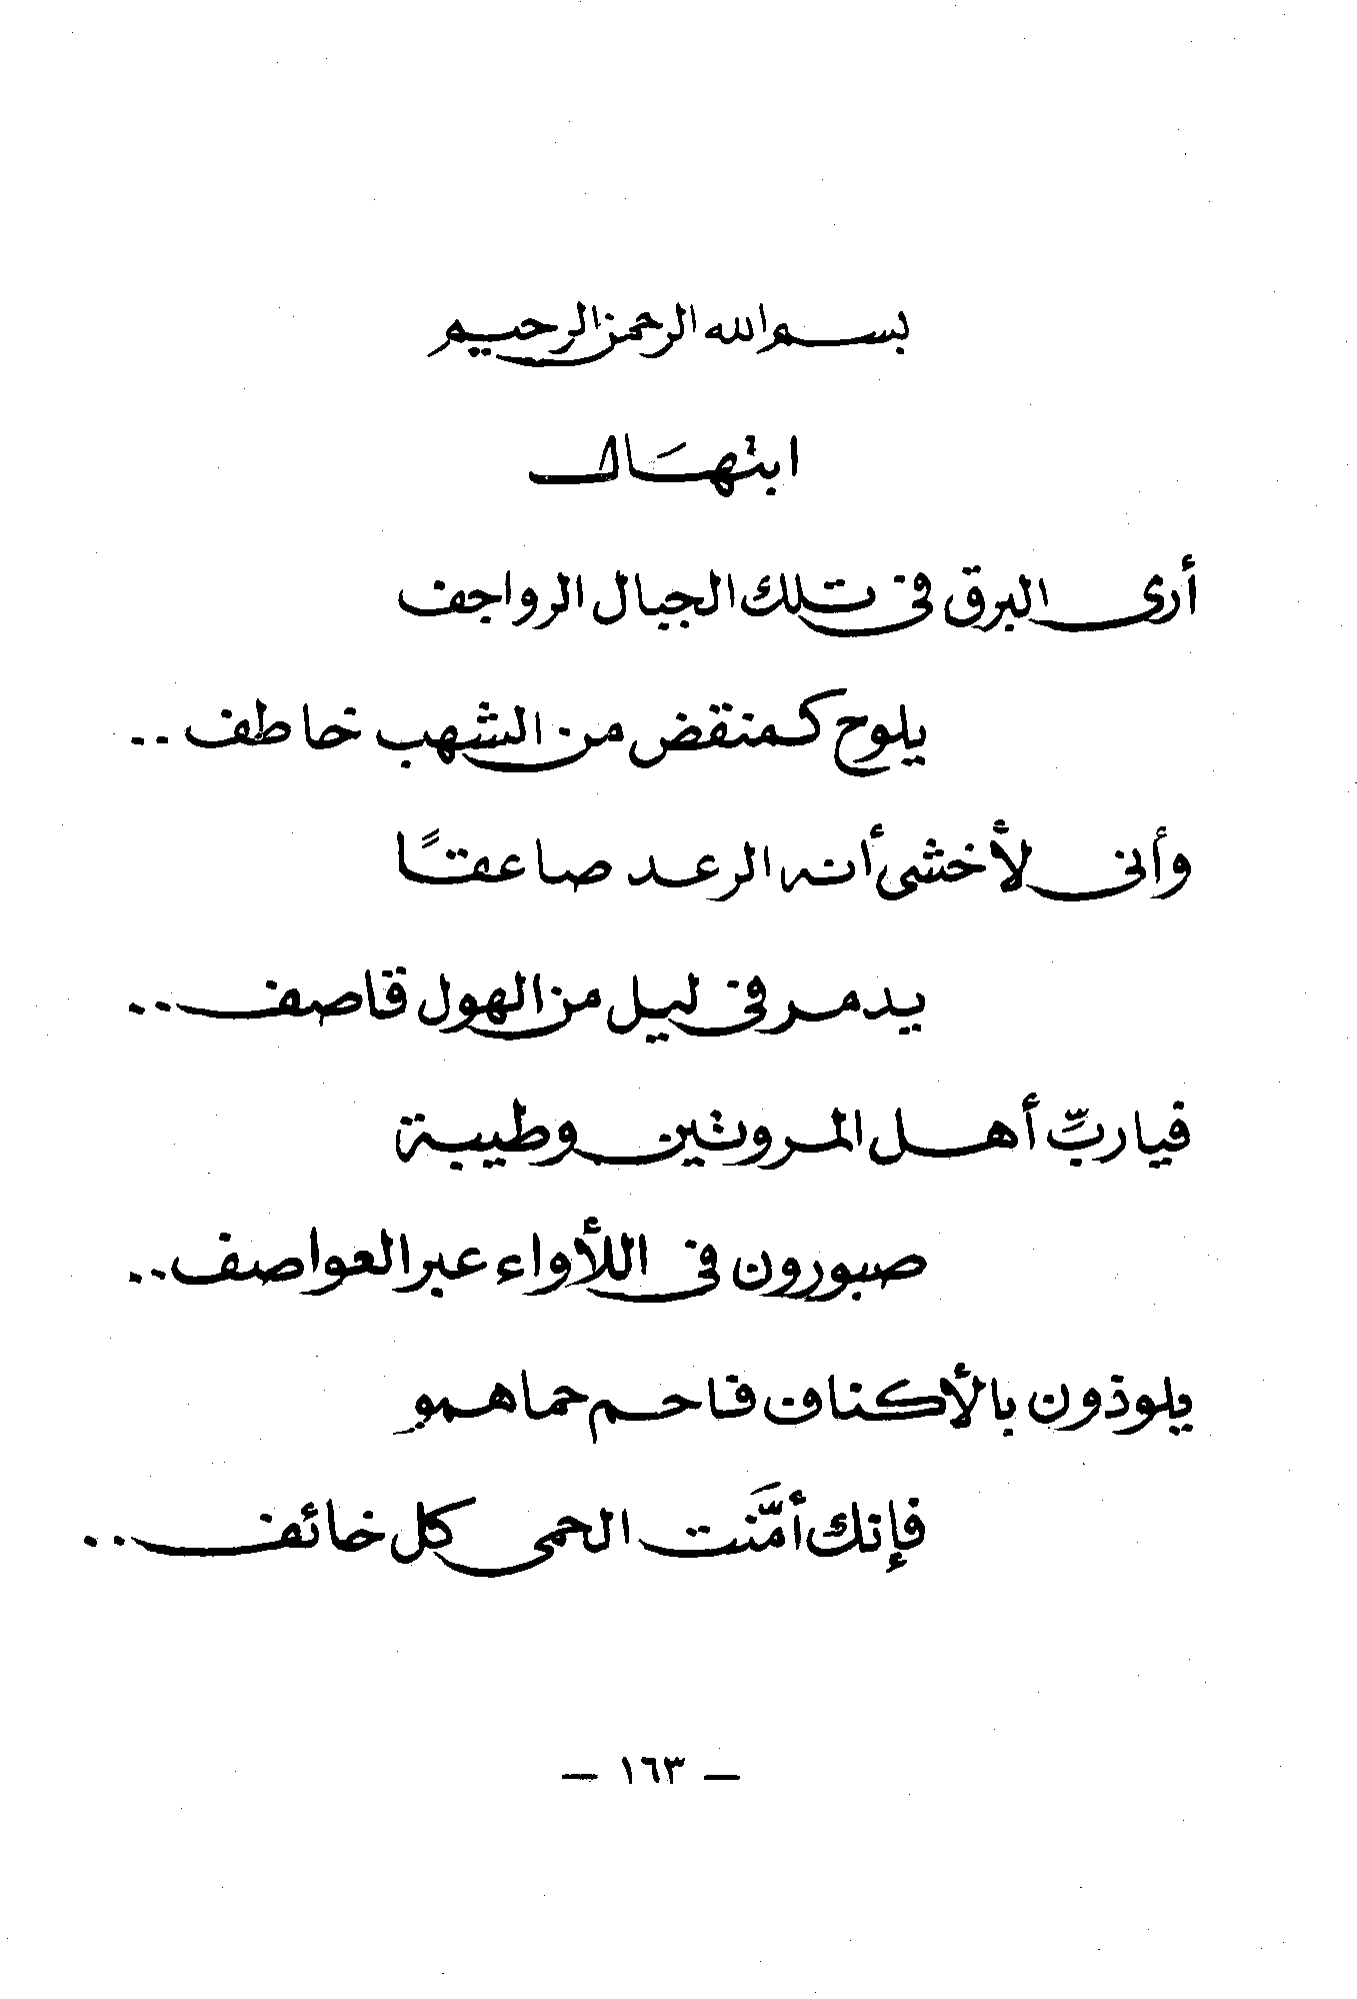 بسم الله الرحمن الرحيم
ابتهال
أرى البرق في تلك الجبال الرواجف
يلوح كمنقض من الشهب خاطف ..
وأني لأخشى أنه الرعد صاعقًا
يدمر في ليل من الهول قاصف ..
فيا ربِّ أهل المروتين وطيبة
صبورون في اللأواء عبر العواصف ..
يلوذون بالأكناف فاحم حماهمو
فإنك أمَّنت الحمى كل خائف ..
— ١٦٣ —